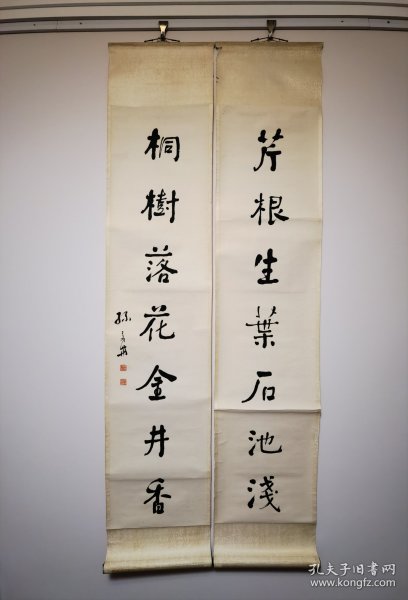 芹根生葉石池淺
桐樹落花金井香
孔夫子旧书网
www.kongfz.com